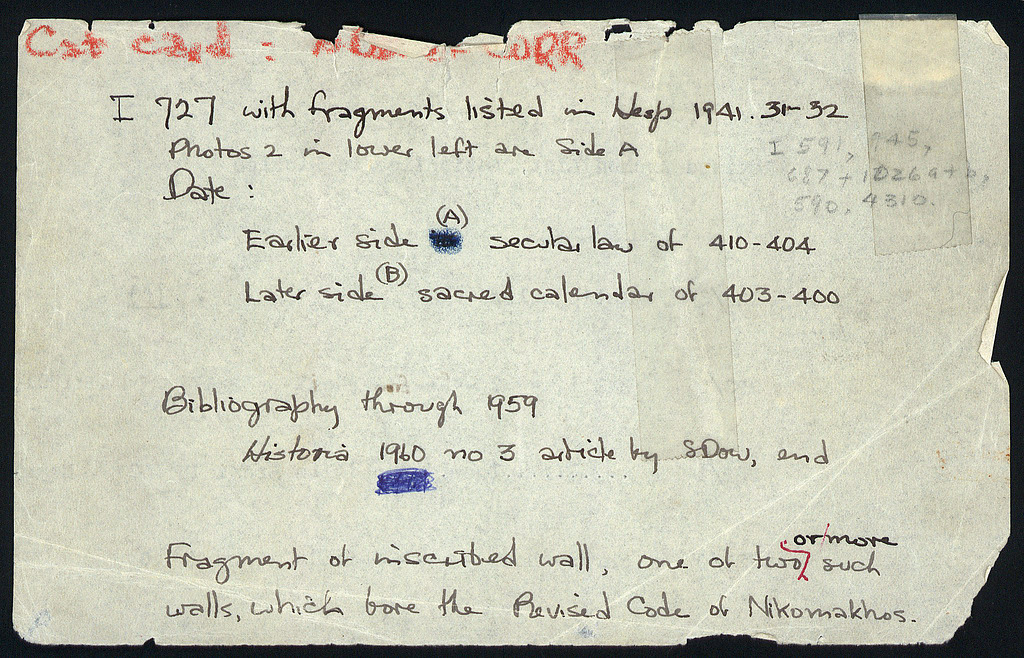 Cat card :
I 727 with fragments listed in Hesp 1941. 31-32
Photos 2 in lower left are Side A
I 591, 945,
687 + 1026 a + b,
590, 4310.
Date :
Earlier side (A) secular law of 410-404
Later side (B) sacred calendar of 403-400
Bibliography through 1959
Historia 1960 no 3 article by SDow, end
Fragment of inscribed wall, one of two or more such
walls, which bore the Revised Code of Nikomakhos.